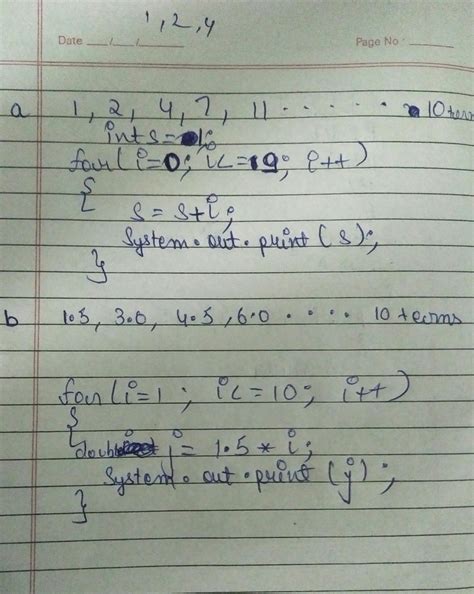 1, 2, 4
Date __/__/__ Page No :
a 1, 2, 4, 7, 11 . . . . . . 10 term
int s = 1;
for(i=0; i<=9; i++)
{
s = s+i;
System.out.print(s);
}
b 1.5, 3.0, 4.5, 6.0 . . . . 10 terms
for(i=1; i<=10; i++)
{
double j = 1.5 * i;
System.out.print(j);
}